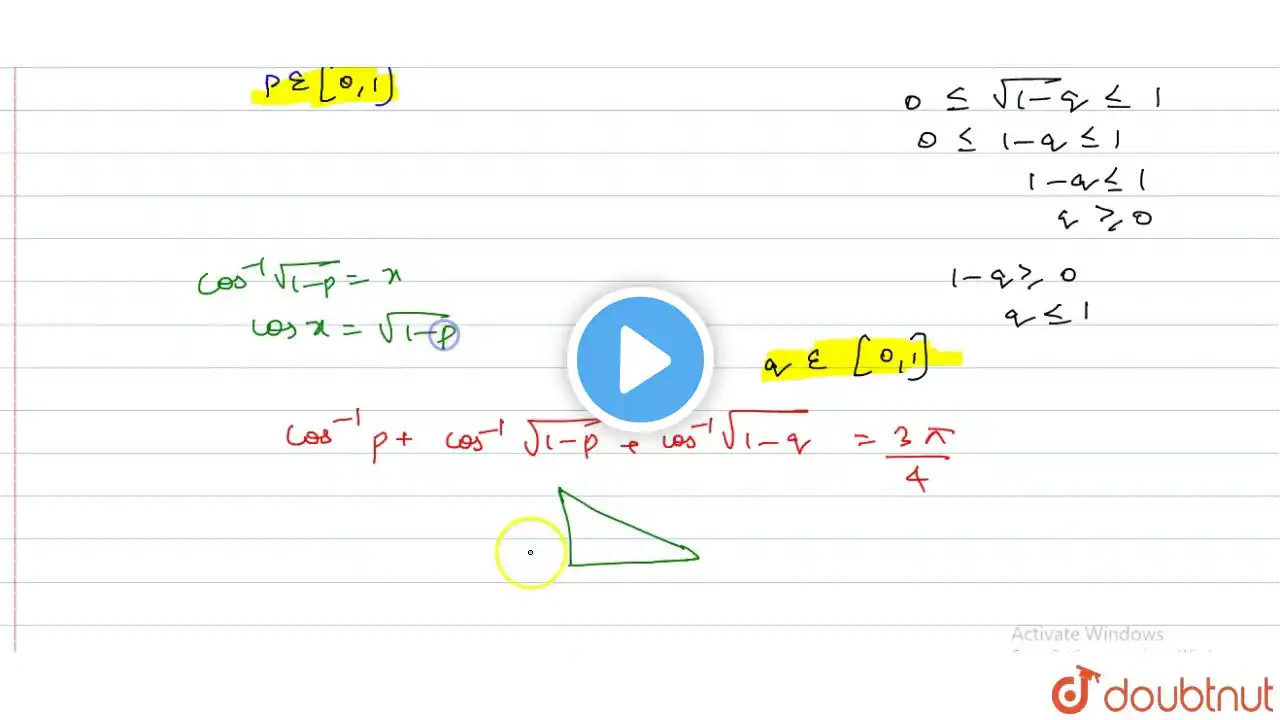 p ε [0, 1]
0 ≤ √1-q ≤ 1
0 ≤ 1-q ≤ 1
1-q ≤ 1
q ≥ 0
cos⁻¹ √1-p = x
cos x = √1-p
1-q ≥ 0
q ≤ 1
q ε [0, 1]
cos⁻¹ p + cos⁻¹ √1-p + cos⁻¹ √1-q = 3π/4
Activate Windows
doubtnut